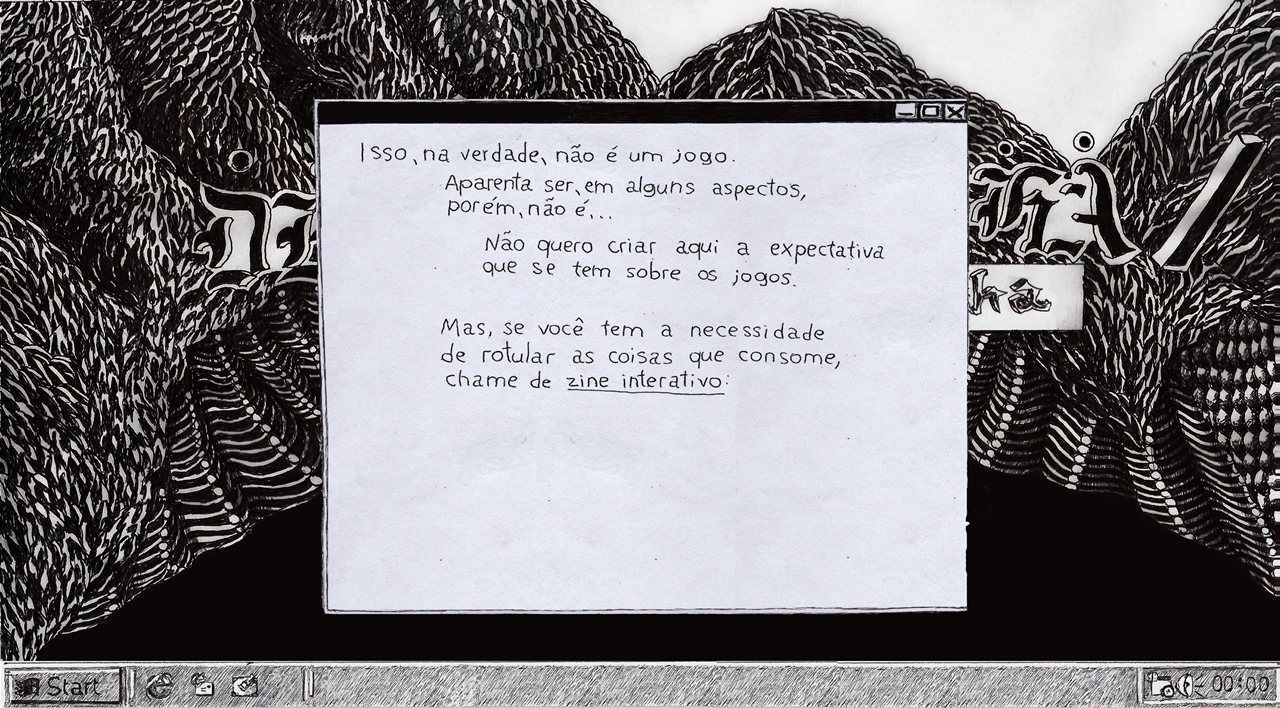 Isso, na verdade, não é um jogo.
Aparenta ser, em alguns aspectos,
porém, não é...
Não quero criar aqui a expectativa
que se tem sobre os jogos.
Mas, se você tem a necessidade
de rotular as coisas que consome,
chame de zine interativo:
Start
00:00